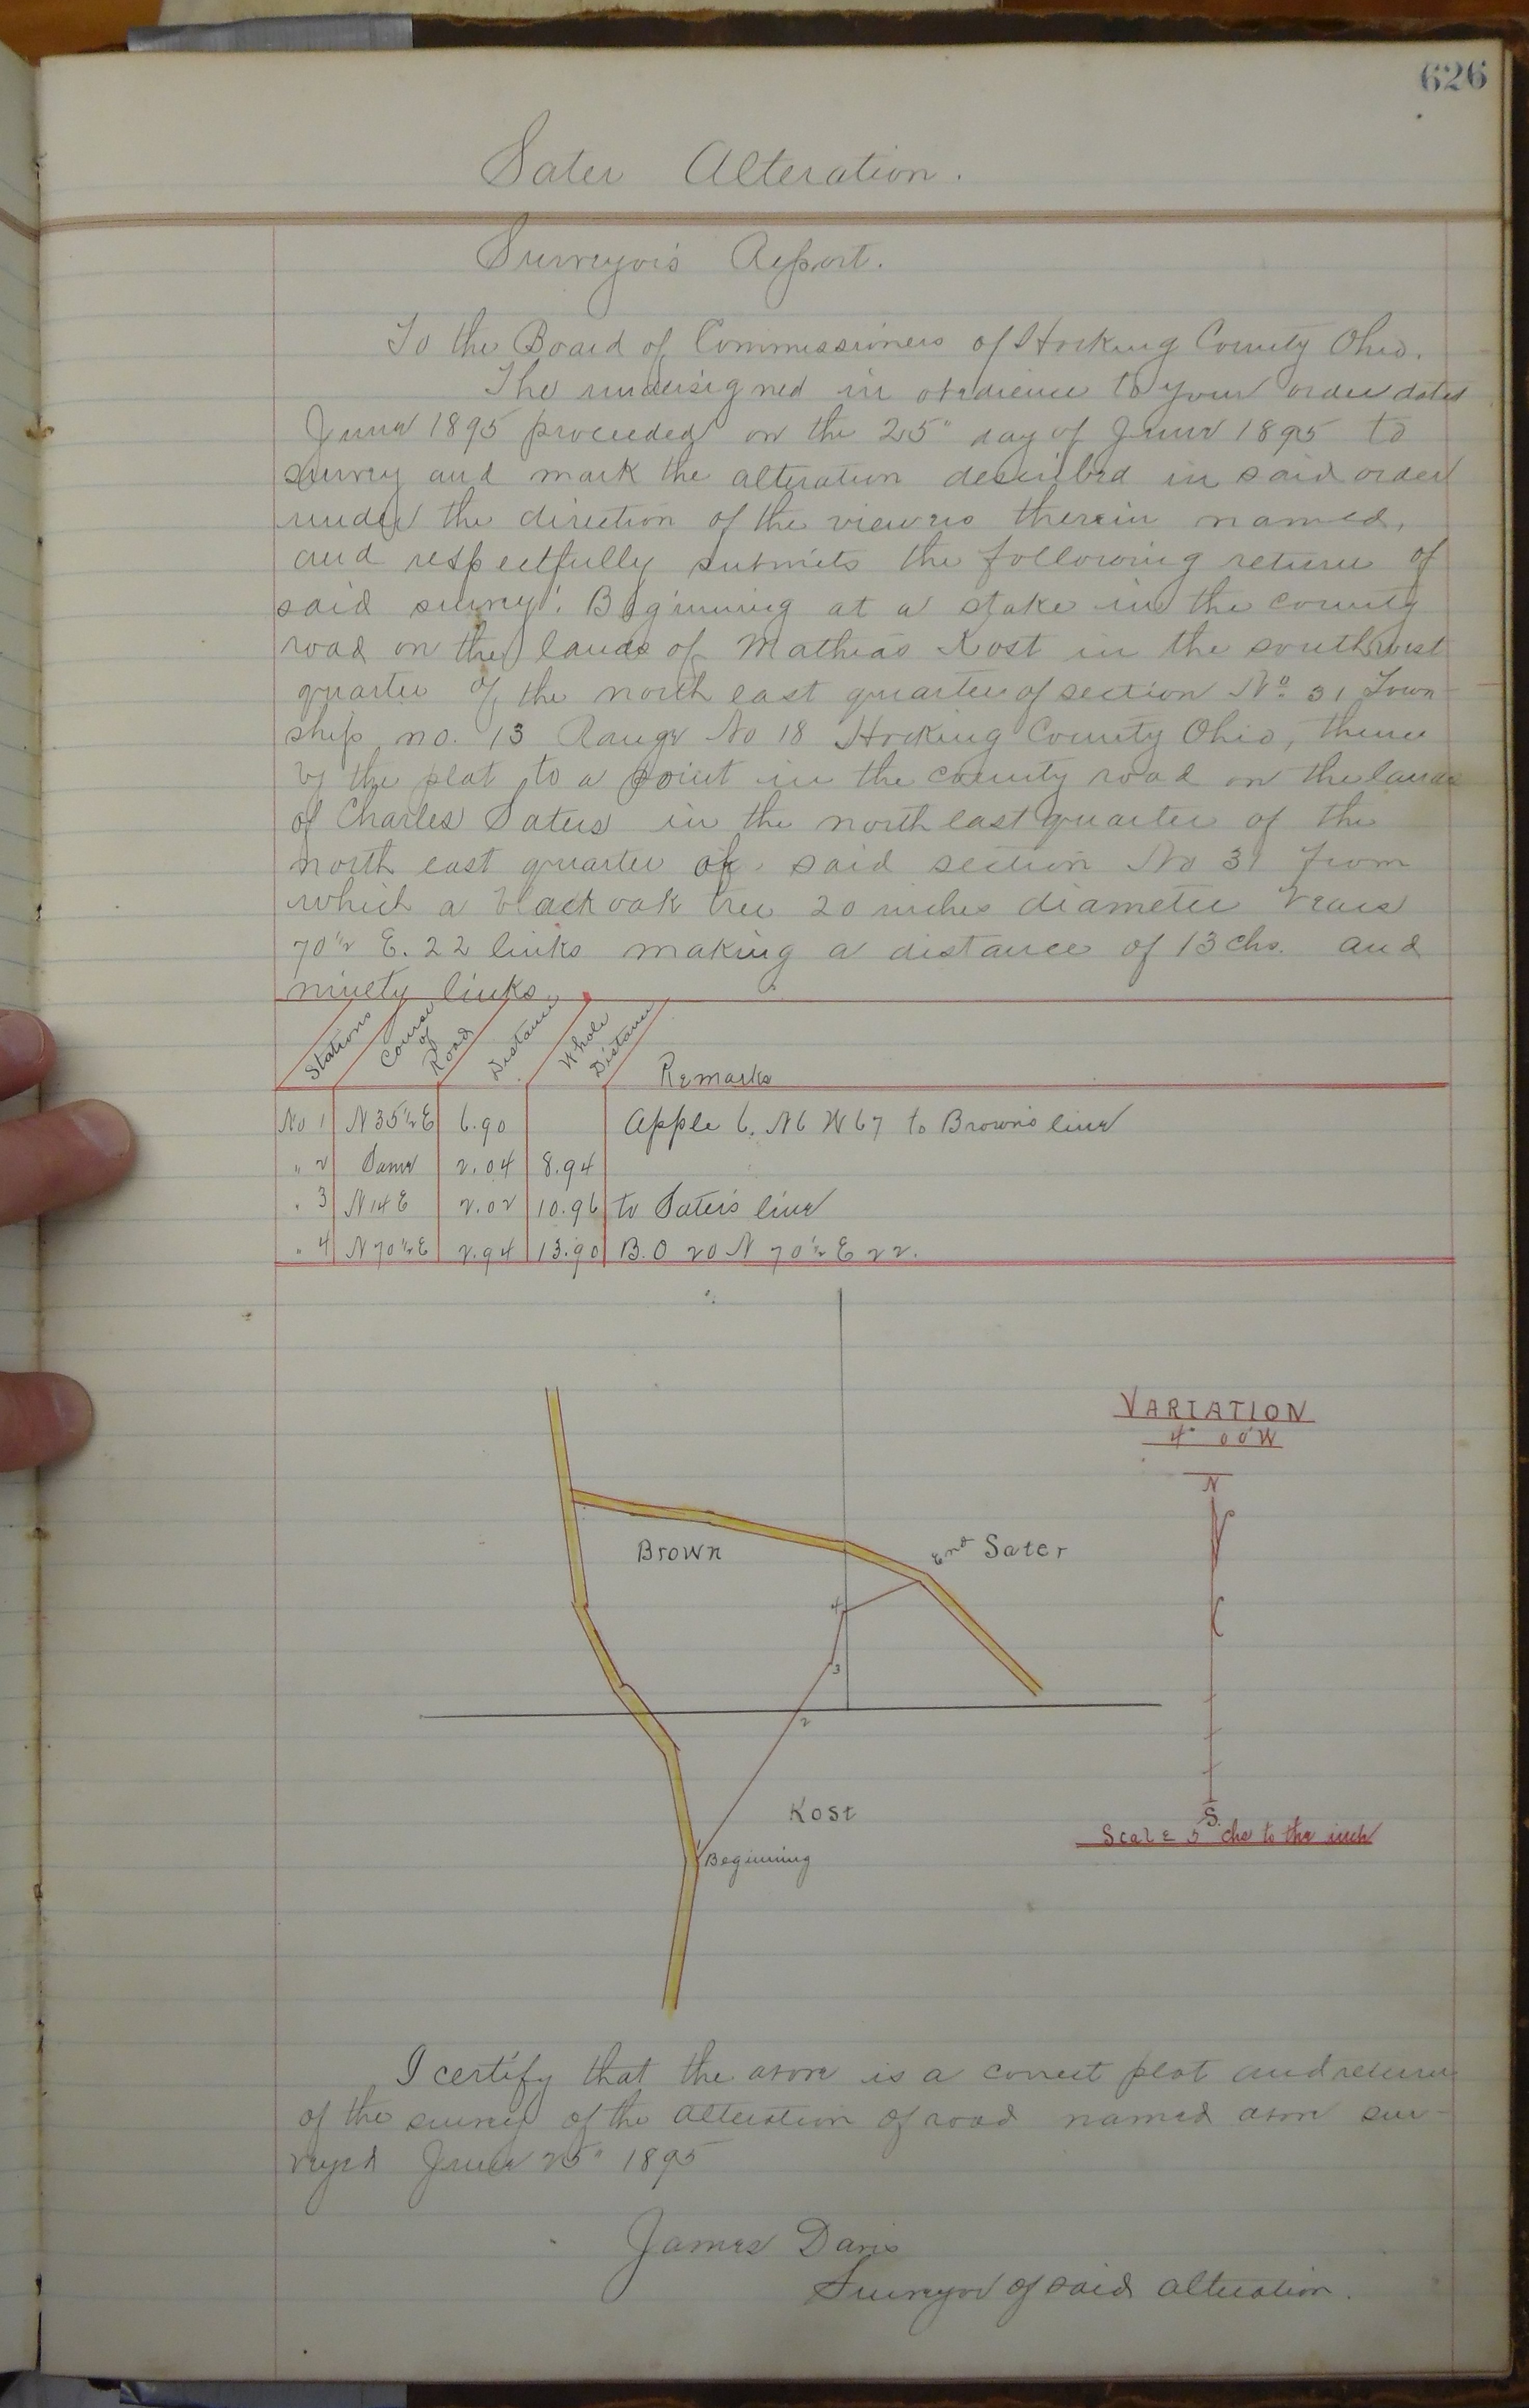 626
Sater Alteration.
Surveyor's Report.
To the Board of Commissioners of Hocking County Ohio.
The undersigned in obedience to your order dated
June 1895 proceeded on the 25" day of June 1895 to
survey and mark the alteration described in said order
under the direction of the viewers therein named,
and respectfully submits the following return of
said survey: Beginning at a stake in the county
road on the lands of Mathias Kost in the southwest
quarter of the north east quarter of section No. 31 Town-
ship no. 13 Range No 18 Hocking County Ohio, thence
by the plat to a point in the county road on the lands
of Charles Saters in the north east quarter of the
north east quarter of said section No 31 from
which a black oak tree 20 inches diameter bears
70 1/2 E. 22 links making a distance of 13 chs. and
ninety links.
Stations Course of Road Distance Whole Distance Remarks
No 1 N 35 1/2 E 6.90 Apple 6. N 6 W 67 to Brown's line
" 2 Same 2.04 8.94
" 3 N 14 E 2.02 10.96 to Sater's line
" 4 N 70 1/2 E 2.94 13.90 B.O 20 N 70 1/2 E 22.
VARIATION
4° 00' W
N
Brown
End Sater
4
3
2
Kost
S.
Scale 5 chs to the inch
1
Beginning
I certify that the above is a correct plat and return
of the survey of the alteration of road named above sur-
veyed June 25" 1895
James Davis
Surveyor of said alteration.